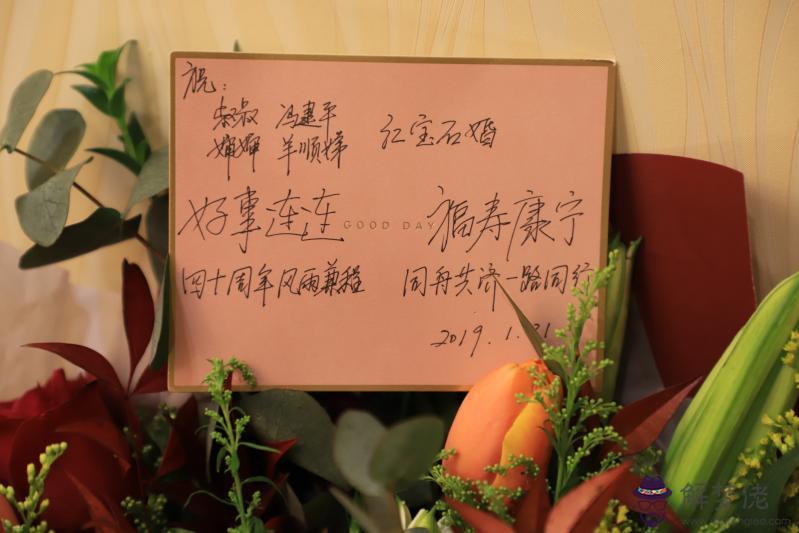 祝：
叔叔 冯建平
婶婶 羊顺娣 红宝石婚
好事连连 GOOD DAY 福寿康宁
四十周年风雨兼程 同舟共济一路同行
2019.1.21
解梦佬